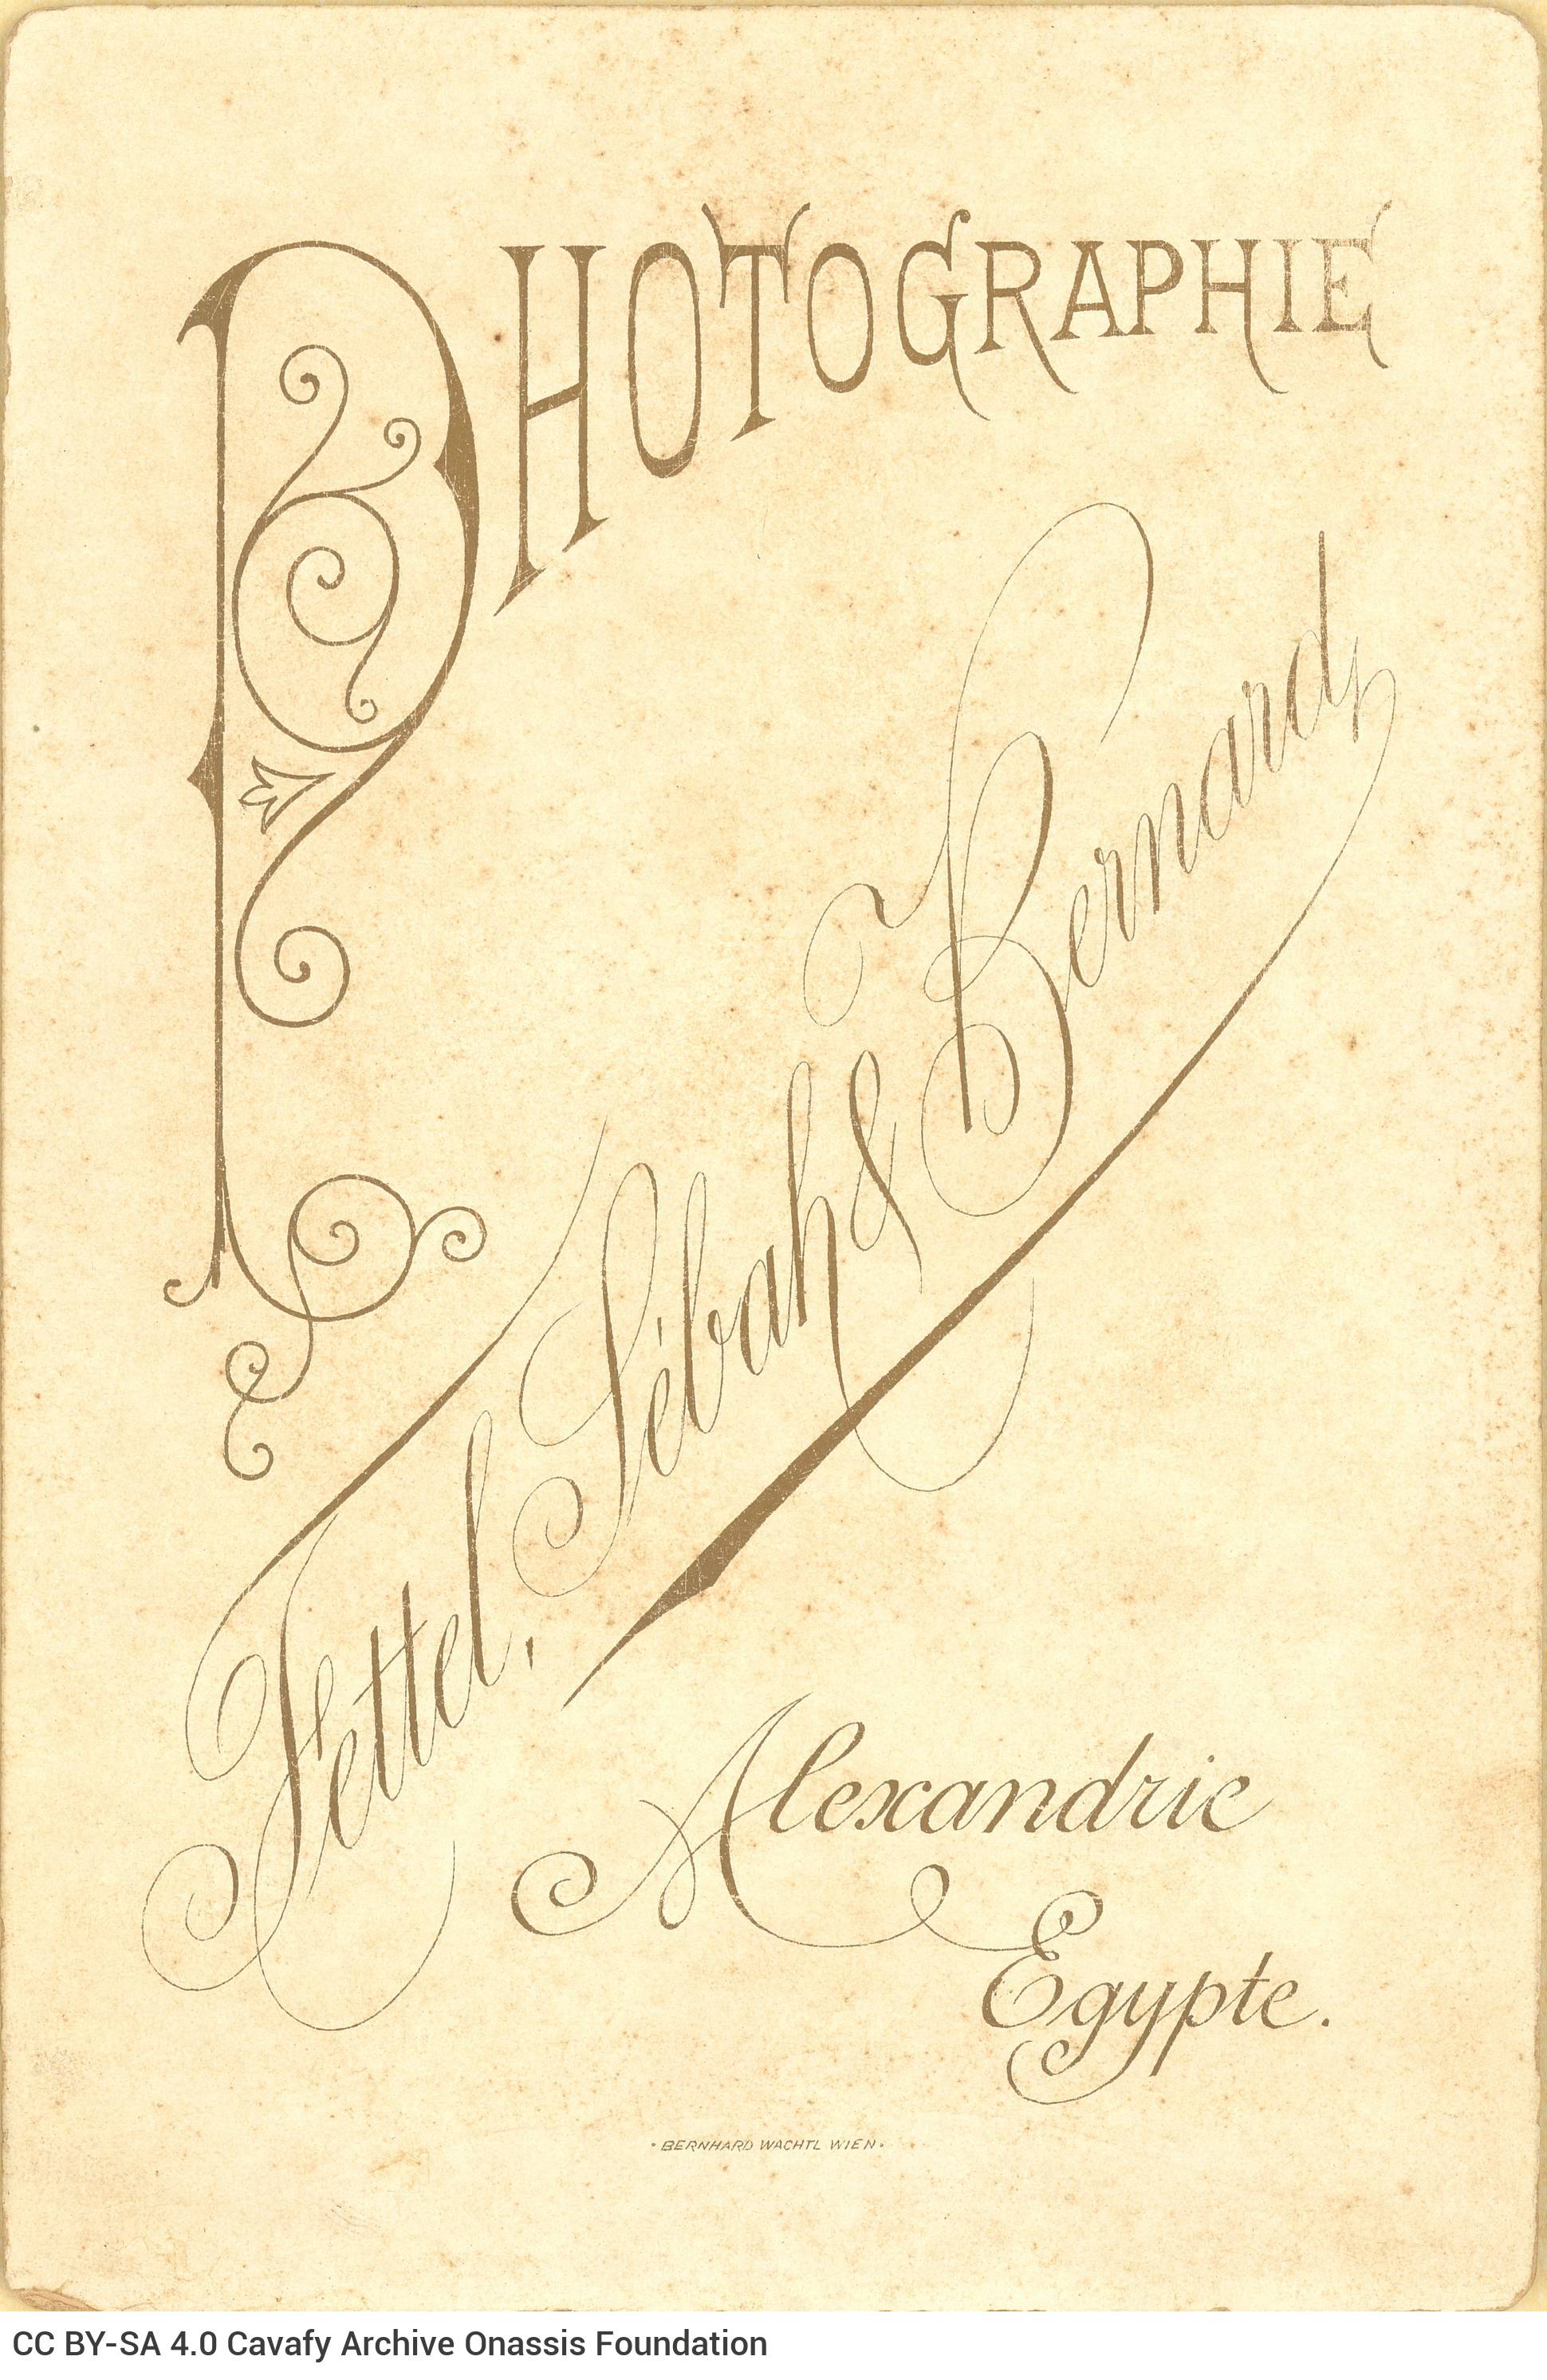 PHOTOGRAPHIE
Fettel, Sébah & Bernard,
Alexandrie
Egypte.
• BERNHARD WACHTL WIEN •
CC BY-SA 4.0 Cavafy Archive Onassis Foundation